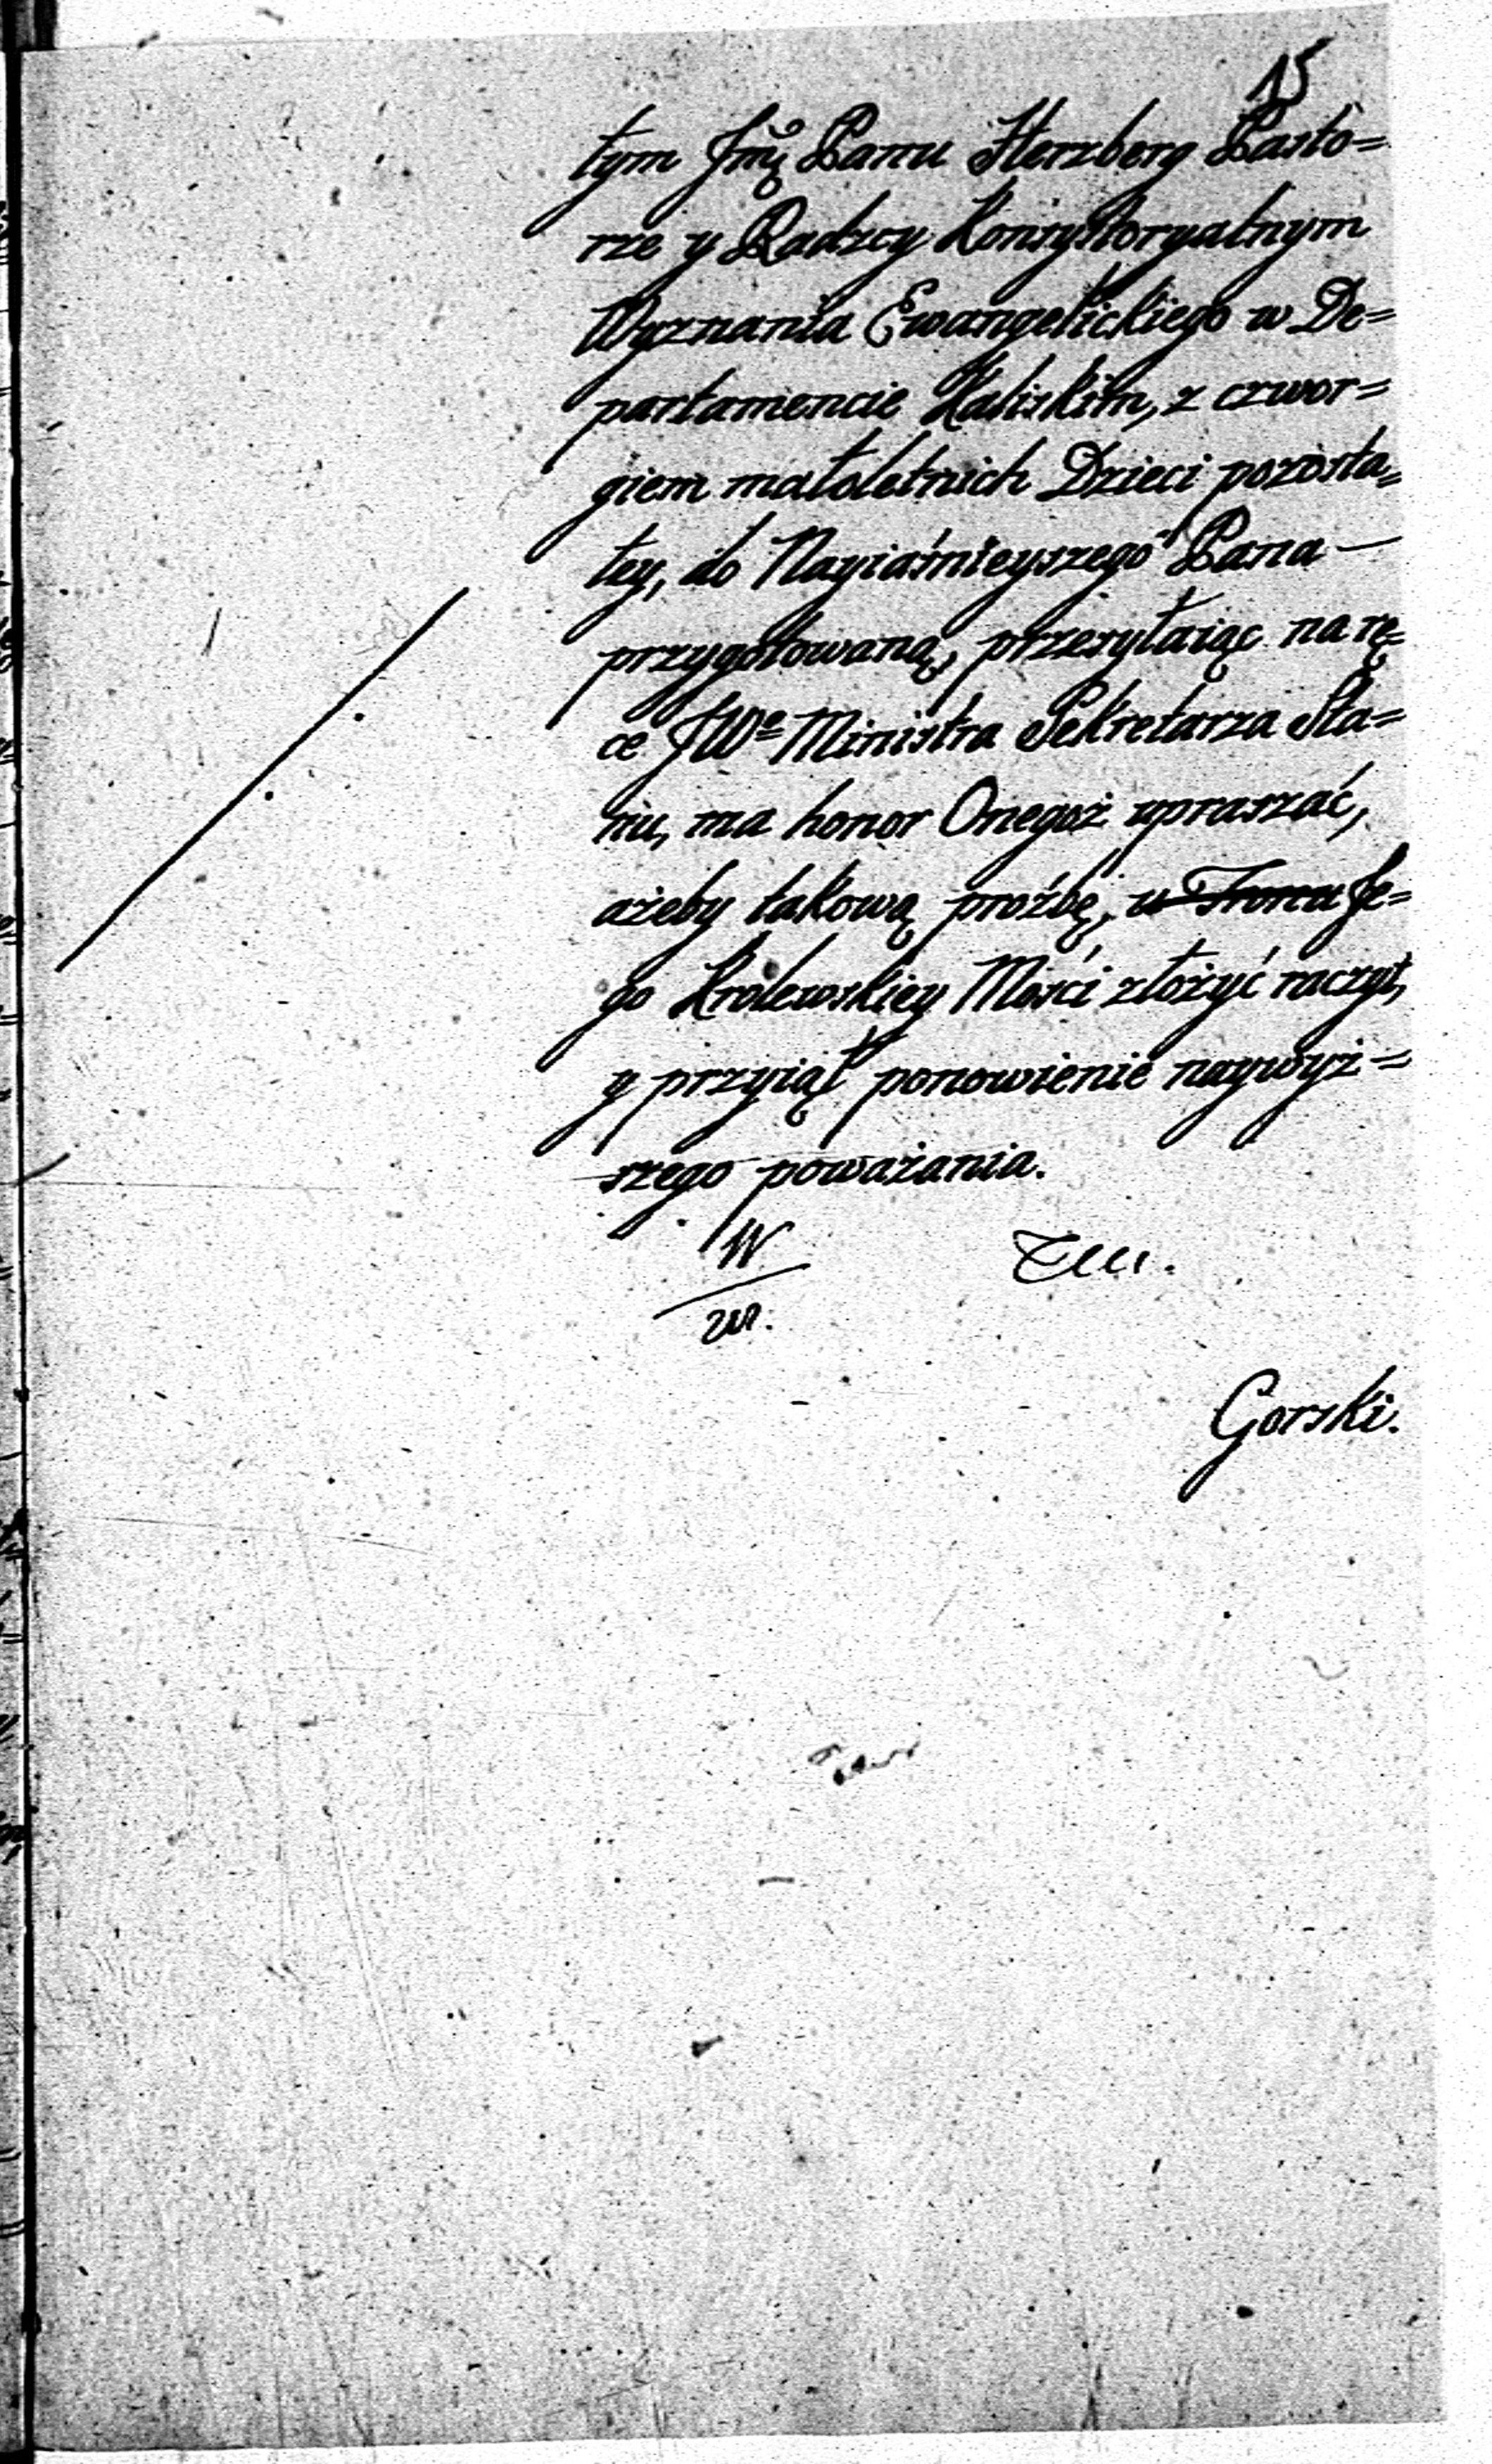 15
tym Jmć Panu Herzberg Pasto=
rze y Radzcy Konsystoryalnym
Wyznania Ewangelickiego w De=
partamencie Kaliskim, z czwor=
giem małoletnich Dzieci pozosta=
łey, do Nayiaśnieyszego Pana —
przygotowaną, przesyłaiąc na rę=
ce JWo Ministra Sekretarza Sta=
nu, ma honor Onegoż upraszać,
ażeby takową proźbę, u Tronu Je=
go Krolewskiey Mości złożyć raczył,
y przyiął ponowienie naywyż=
szego poważania.
W
Gorski.